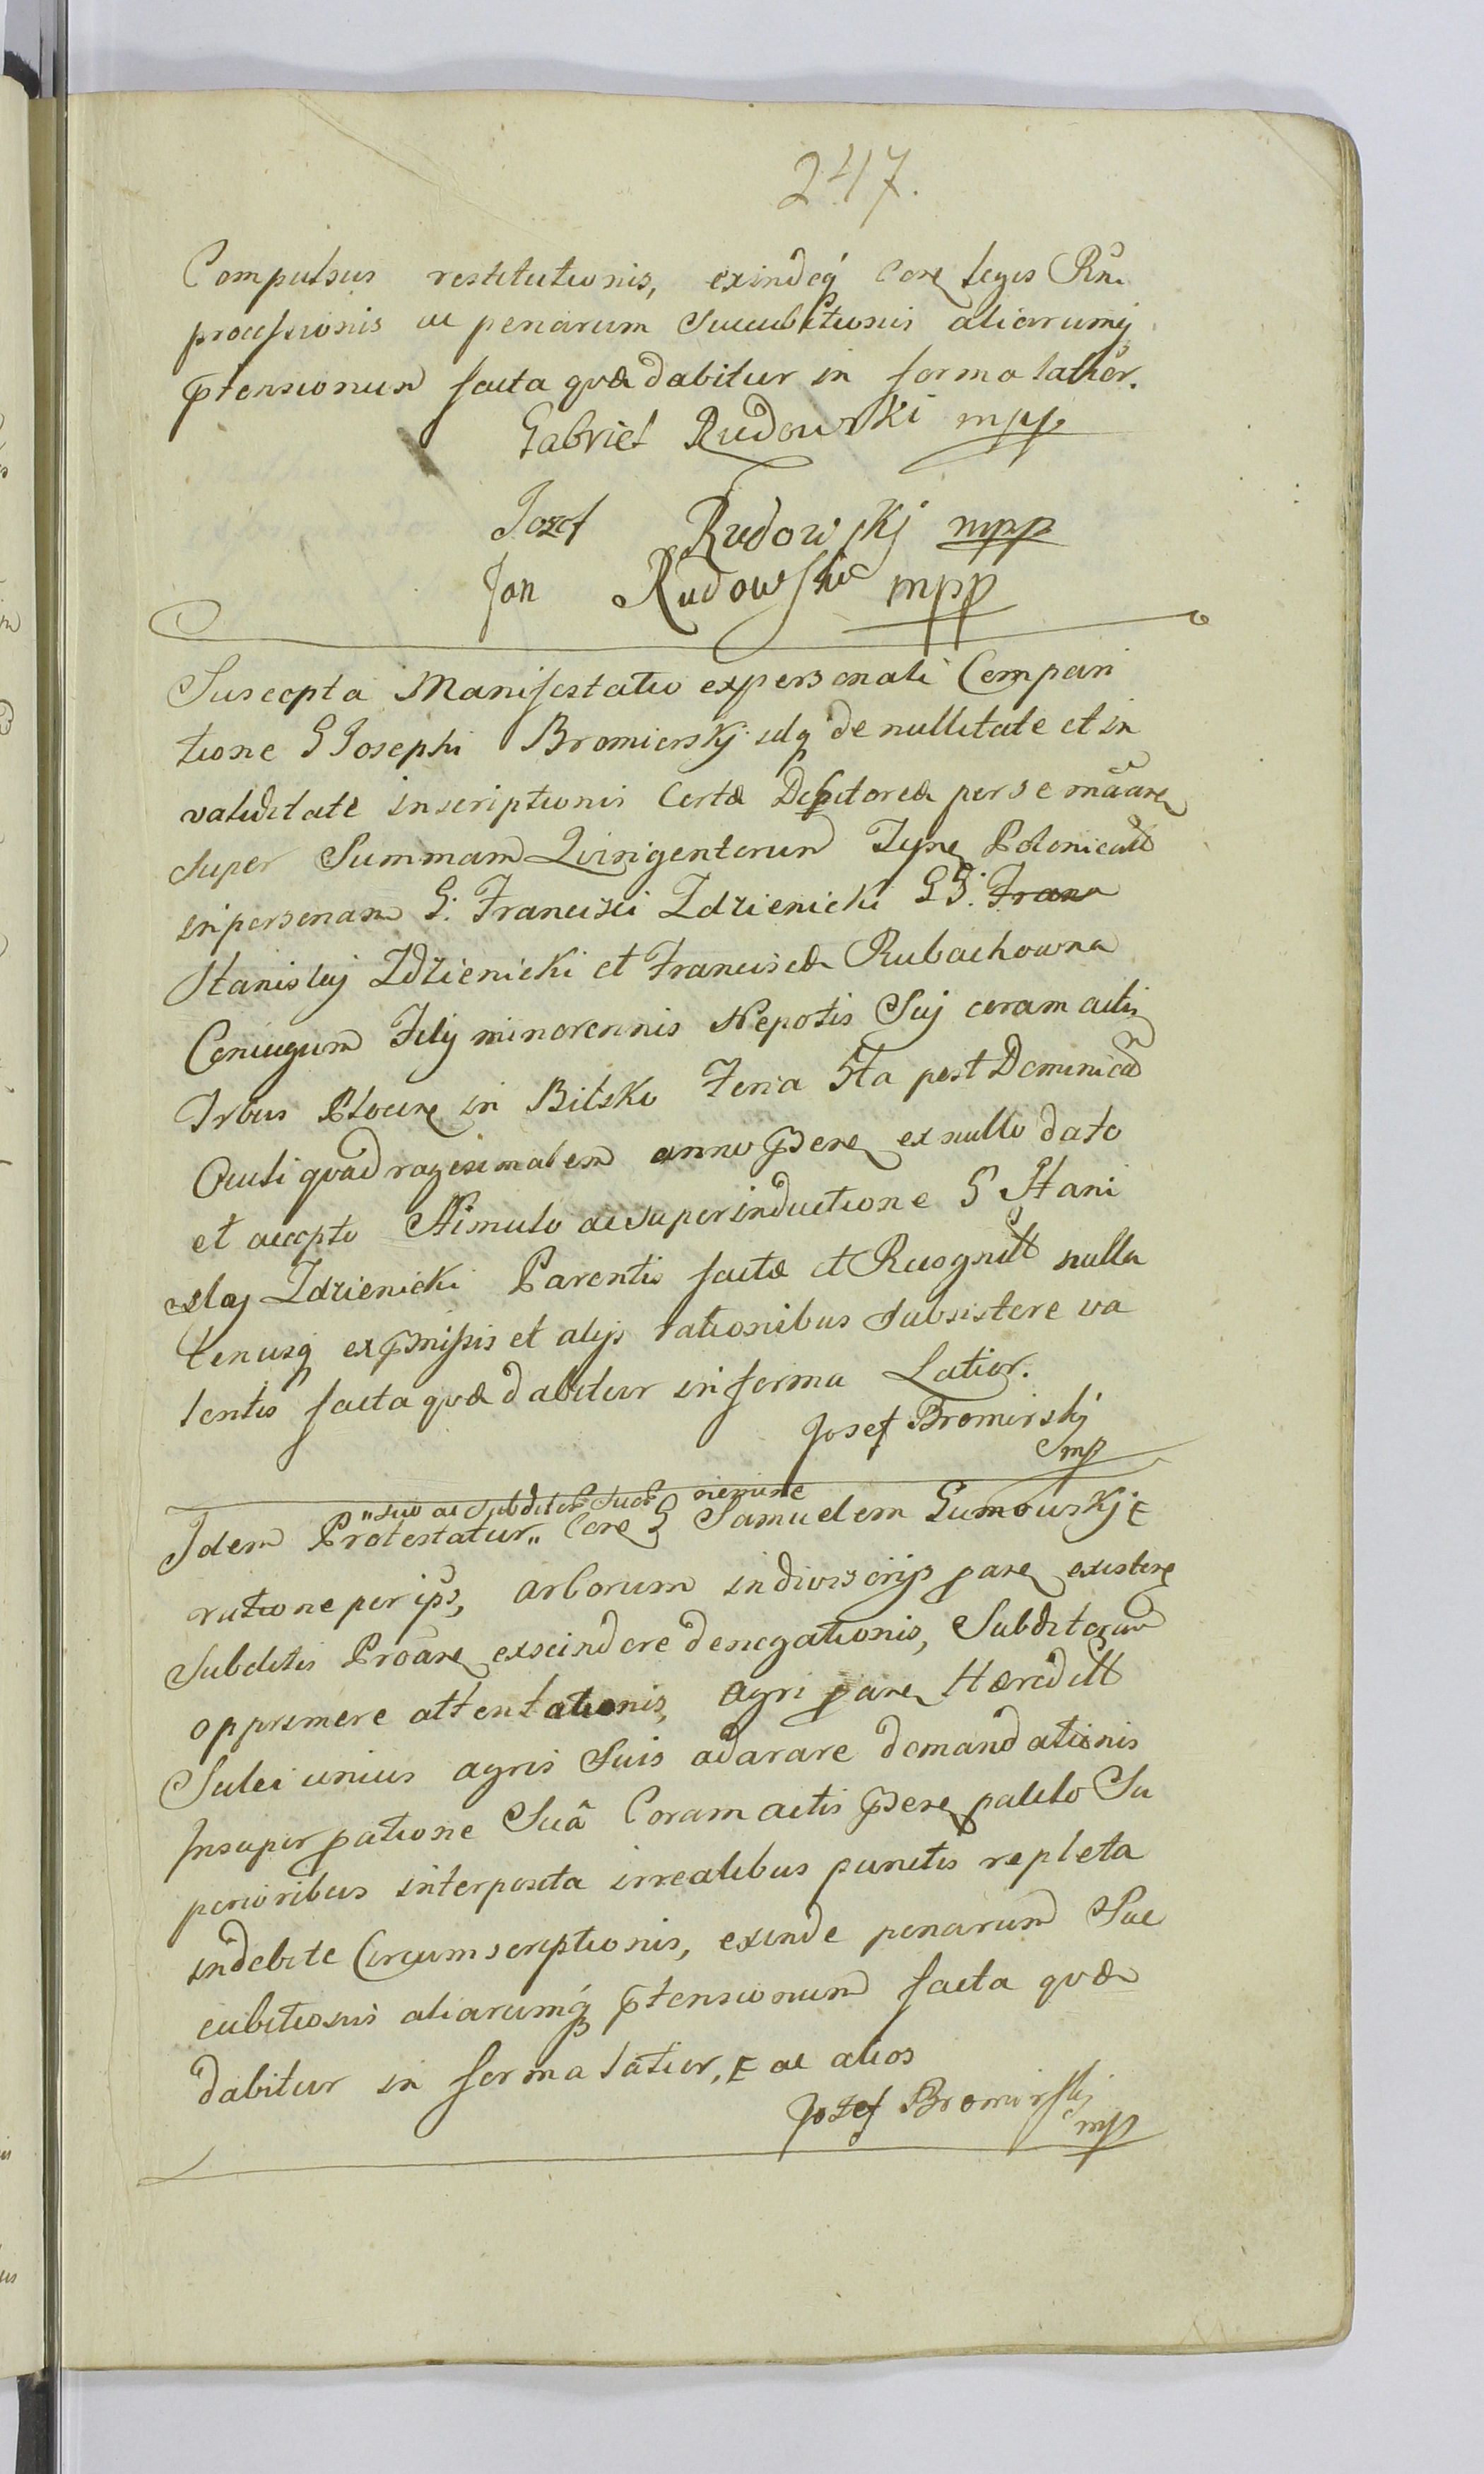 247.
Compulsus restitutionis, exindeq́ Cone legis Rñ.
processionis ac penarum Succubitionis aliarumq́
ptensionum facta quæ dabitur in forma latior.
Gabriel Rudowski mpp
Jozef Rudowskj mpp
Jan Rudowski mpp
Suscepta Manifestatio expersonali Compari
tione G Josephi Bromierskj idq́ de nullitate et in
validitate inscriptionis Certæ Debitoreæ per se
super Summam Quingentorum Tynf Polonical
inpersonam G. Francisci Zdzienicki GG. Fran
Stanislaj Zdzienicki et Franciscæ Rubachowna
Coniugum Filij minorennis Nepotis Suj coram actis
Trbus Plocen in Bilsko Feria 5ta post Dominicam
Oculi quadragesimalem anno psen ex nullo dato
et accepto Stimulo ac superinductione G Stani
slaj Zdzienicki Parentis factæ et Recognitæ nulla
tenusq́ expmissis et alijs rationibus subsistere va
lentis facta quæ dabitur in forma Latior.
Josef Bromirskj
mp
"suo ac Subditor Suor nomine
Idem Protestatur " Cone G Samuelem Gumowskj
ratione per ips, arborum indiversorijs existen
Subditis exscindere denegationis, Subditorum
opprimere attentationis, agri Hæredit
Sulci unius agris Suis adarare demandationis
Insuper patione Suâ Coram actis psen palulo Su
perioribus interposita irrealibus punctis repleta
indebite Circumscriptionis, exinde penarum Suc
cubitionis aliarumq́ ptensionum facta quæ
dabitur in forma latior, ac alios
Jozef Bromirskj
mp